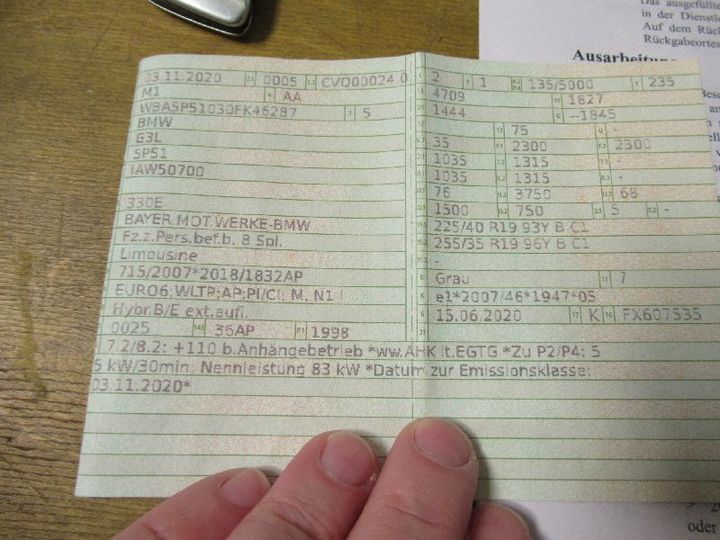 Das ausgefüllte
in der Dienst
Auf dem Rück
Rückgabeortes
Ausarbeitung
03.11.2020 2.1 0005 2.2 CVO00024 0
M1 AA
WBA5P51030FK46287 3 5
BMW
G3L
5P51
IAW50700
330E
BAYER.MOT.WERKE-BMW
Fz.z.Pers.bef.b. 8 Spl.
Limousine
715/2007*2018/1832AP
EURO6;WLTP;AP;PI/CI; M, N1 I
Hybr.B/E ext.aufl.
0025 14.1 36AP P.1 1998
L 2 9 1 P.2 P.4 135/5000 T 235
18 4709 19 1827
20 1444 G --1845
13 75 Q -
35 2300 2300
1035 1315 -
1035 1315 -
76 3750 68
1500 750 5 -
225/40 R19 93Y B C1
255/35 R19 96Y B C1
-
R Grau 11 7
K e1*2007/46*1947*05
6 15.06.2020 17 K 16 FX607535
21
7.2/8.2: +110 b.Anhängebetrieb *ww.AHK lt.EGTG *Zu P2/P4: 5
5 kW/30min; Nennleistung 83 kW *Datum zur Emissionsklasse:
03.11.2020*